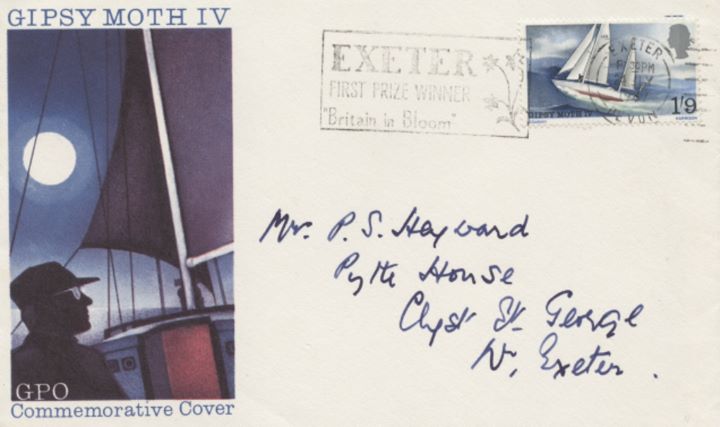 GIPSY MOTH IV
EXETER
FIRST PRIZE WINNER
"Britain in Bloom"
EXETER
DEVON
GIPSY MOTH IV
1/9
HARRISON
Mr. P. S. Hayward
Pytte House
Clyst St. George
Nr, Exeter.
GPO
Commemorative Cover